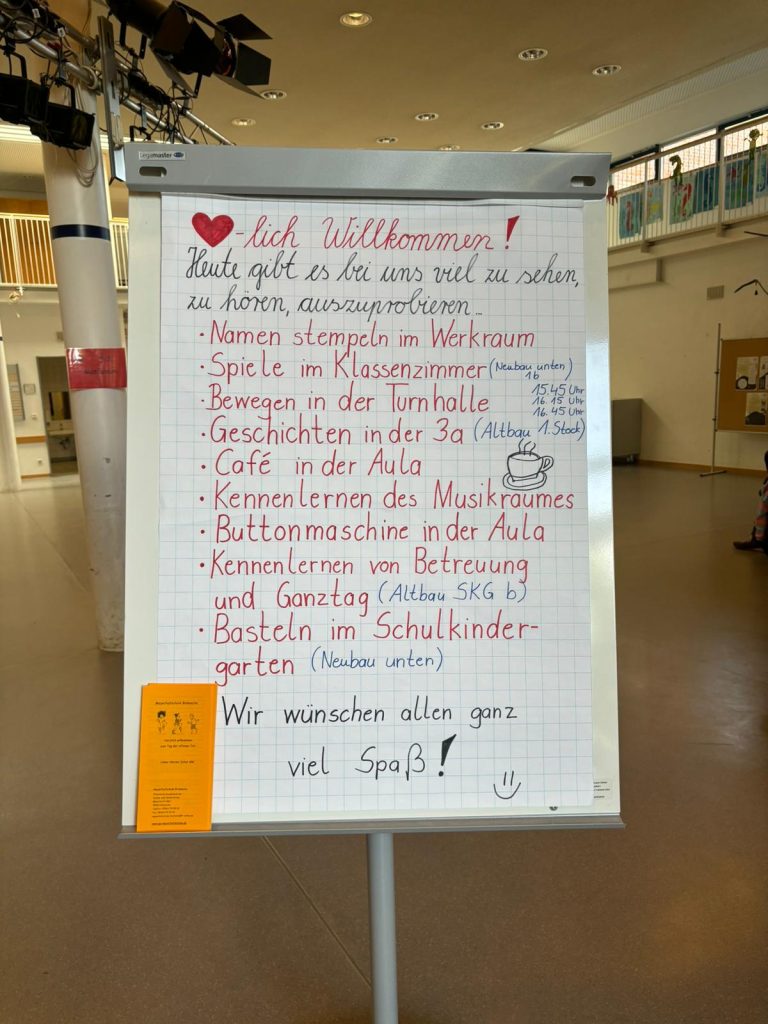 Legamaster
-lich Willkommen!
Heute gibt es bei uns viel zu sehen,
zu hören, auszuprobieren...
· Namen stempeln im Werkraum
· Spiele im Klassenzimmer (Neubau unten)
1b
· Bewegen in der Turnhalle 15.45 Uhr
16.15 Uhr
16.45 Uhr
· Geschichten in der 3a (Altbau 1. Stock)
· Café in der Aula
· Kennenlernen des Musikraumes
· Buttonmaschine in der Aula
· Kennenlernen von Betreuung
und Ganztag (Altbau SKG b)
· Basteln im Schulkinder-
garten (Neubau unten)
Wir wünschen allen ganz
viel Spaß!